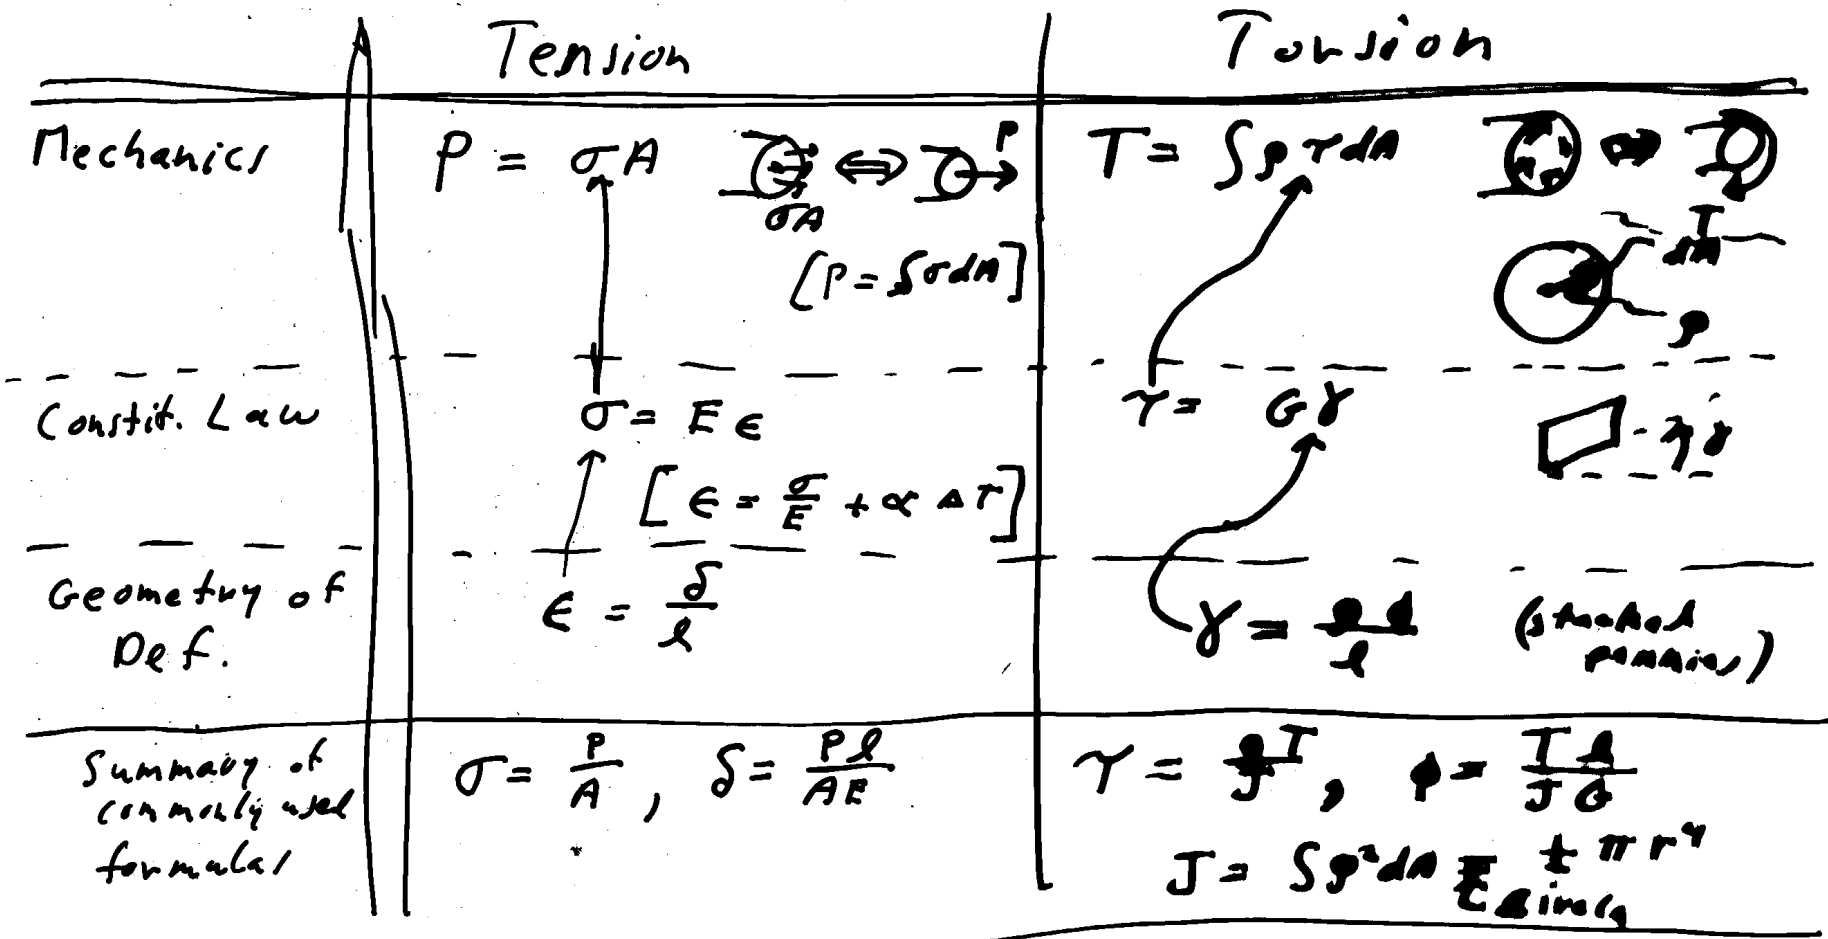 Tension Torsion
Mechanics P = σA σA ⇔ P T = ∫ρτdA ⇔ T
[P = ∫σdA] dA
ρ
Constit. Law σ = Eϵ τ = Gγ γ
[ϵ = σ/E + α ΔT]
Geometry of Def. ϵ = δ/l γ = ρϕ/l (stacked pennies)
Summary of commonly used formulas σ = P/A , δ = Pl/AE τ = ρT/J , ϕ = Tl/JG
J = ∫ρ²dA = ½πr⁴